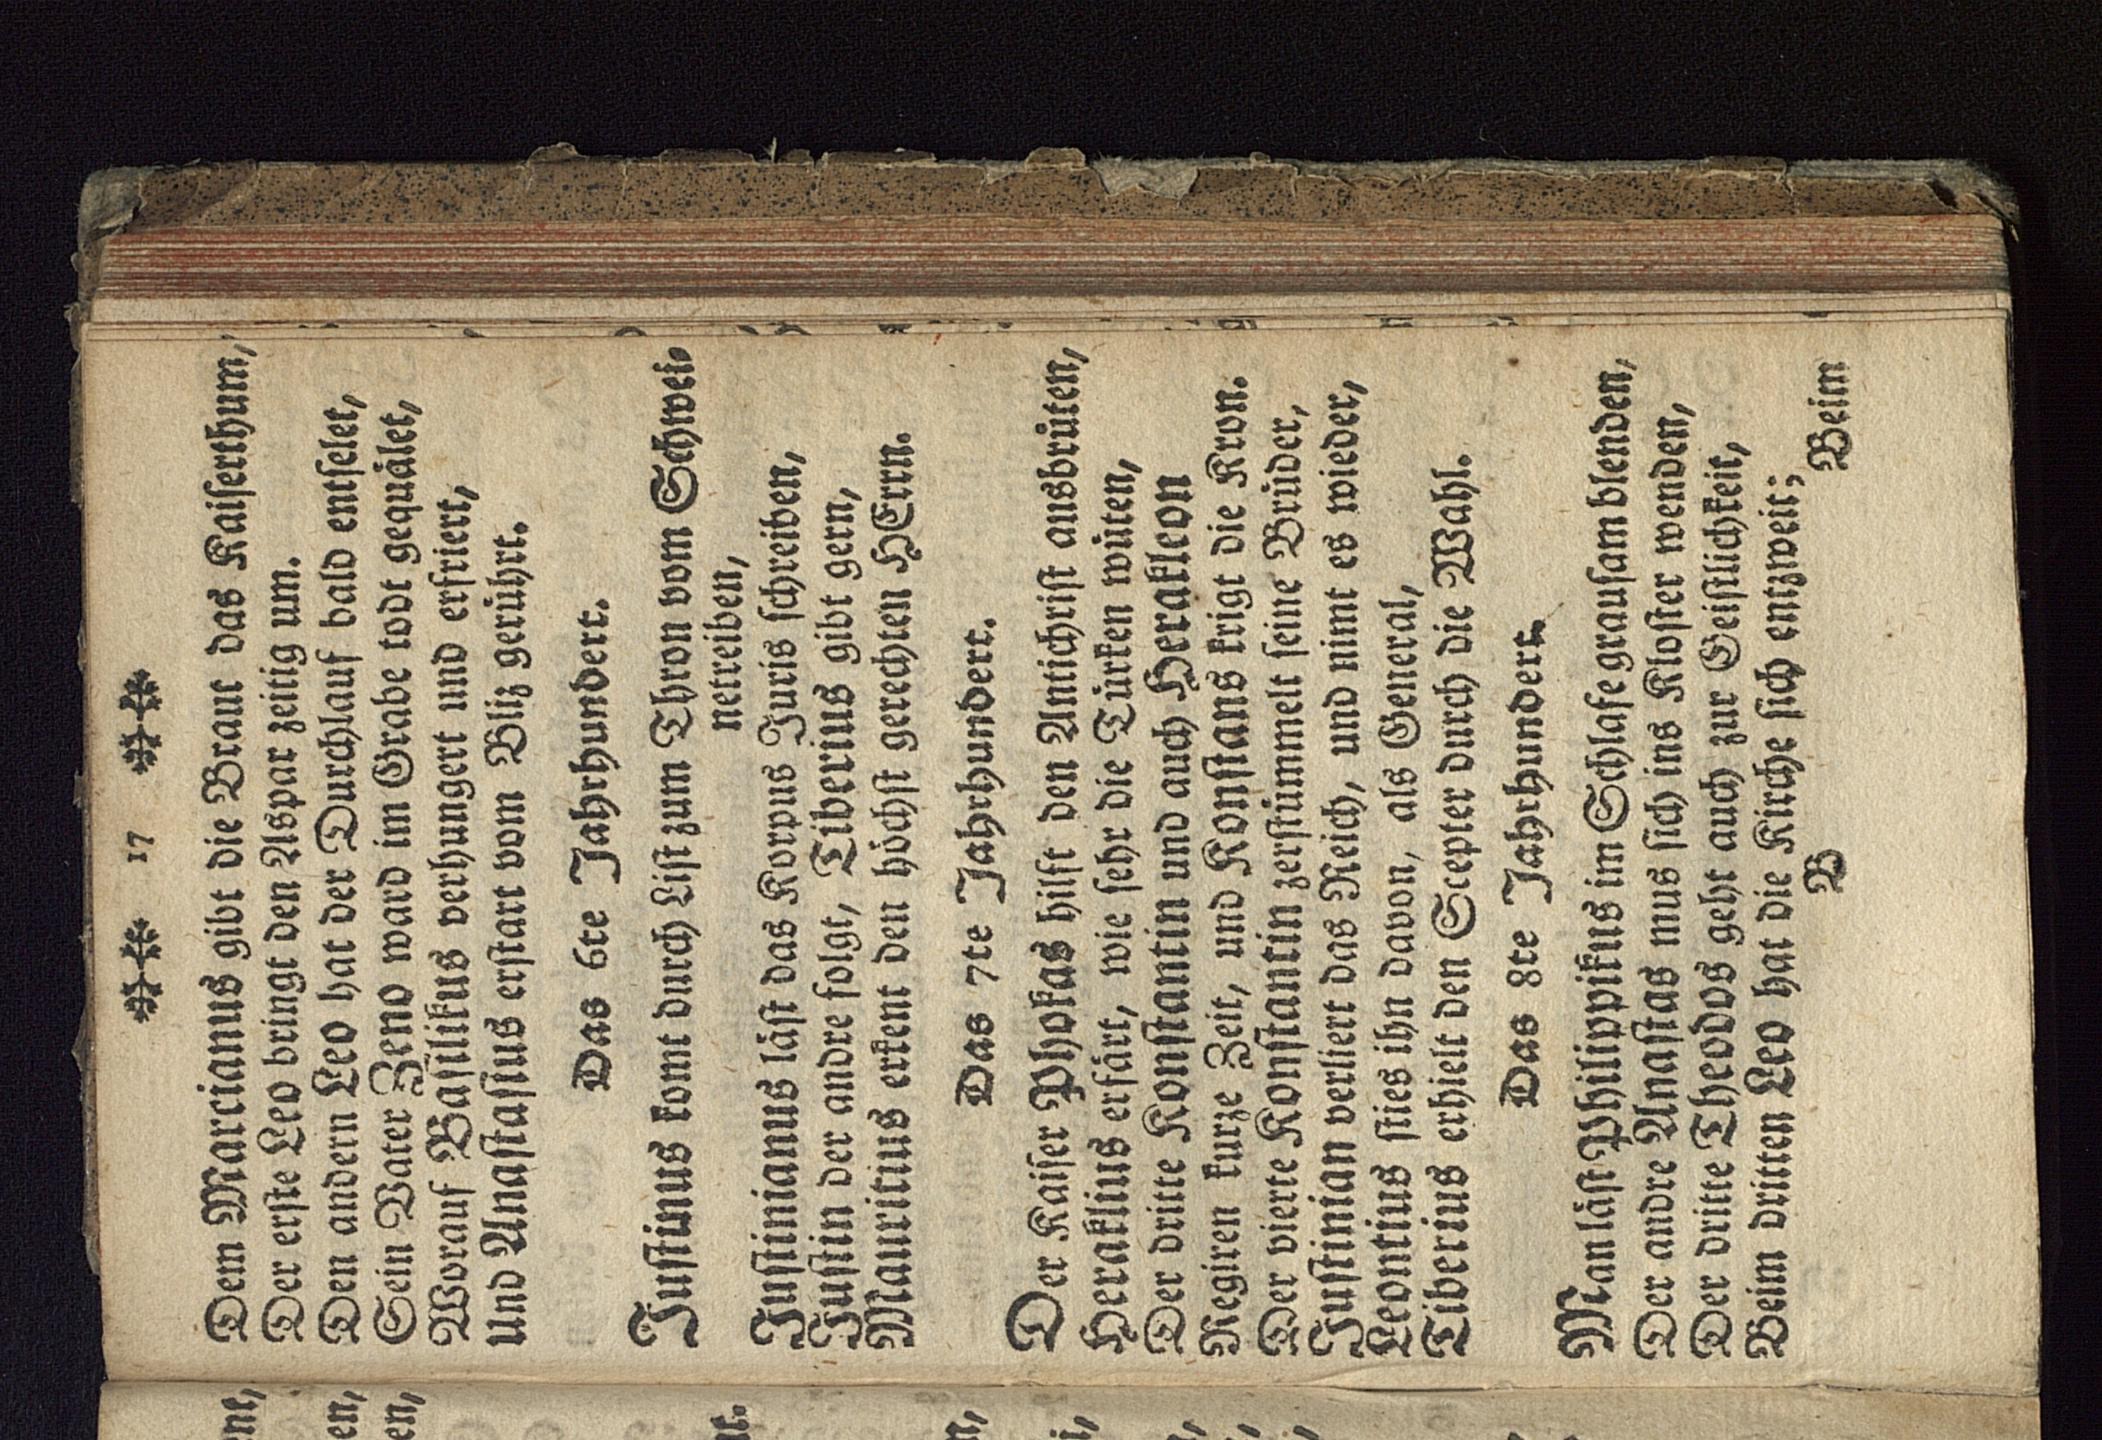 17
Dem Marcianus gibt die Braut das Kaiserthum,
Der erste Leo bringt den Aspar zeitig um.
Den andern Leo hat der Durchlauf bald entselet,
Sein Vater Zeno ward im Grabe todt gequålet,
Worauf Basilikus verhungert und erfriert,
Und Anastasius erstart vom Bliz gerůhrt.
Das 6te Jahrhundert.
Justinus komt durch List zum Thron vom Schwei-
netreiben,
Justinianus låst das Korpus Juris schreiben,
Justin der andre folgt, Tiberius gibt gern,
Mauritius erkent den höchst gerechten HErrn.
Das 7te Jahrhundert.
Der Kaiser Phokas hilft den Antichrist ausbrůten,
Heraklius erfårt, wie sehr die Tůrken wůten,
Der dritte Konstantin und auch Herakleon
Regiren kurze Zeit, und Konstans krigt die Kron.
Der vierte Konstantin zerstůmmelt seine Brůder,
Justinian verliert das Reich, und nimt es wieder,
Leontius sties ihn davon, als General,
Tiberius erhielt den Scepter durch die Wahl.
Das 8te Jahrhundert.
Man låst Philippikus im Schlafe grausam blenden,
Der andre Anastas mus sich ins Kloster wenden,
Der dritte Theodos geht auch zur Geistlichkeit,
Beim dritten Leo hat die Kirche sich entzweit;
B Beim